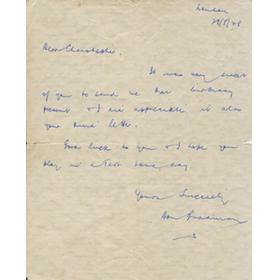 London
29/8/48
Dear Christopher,
It was very sweet
of you to send me that birthday
present & I do appreciate it also
your kind letter.
Good luck to you & I hope you
play in a Test some day.
Yours Sincerely
Don Bradman